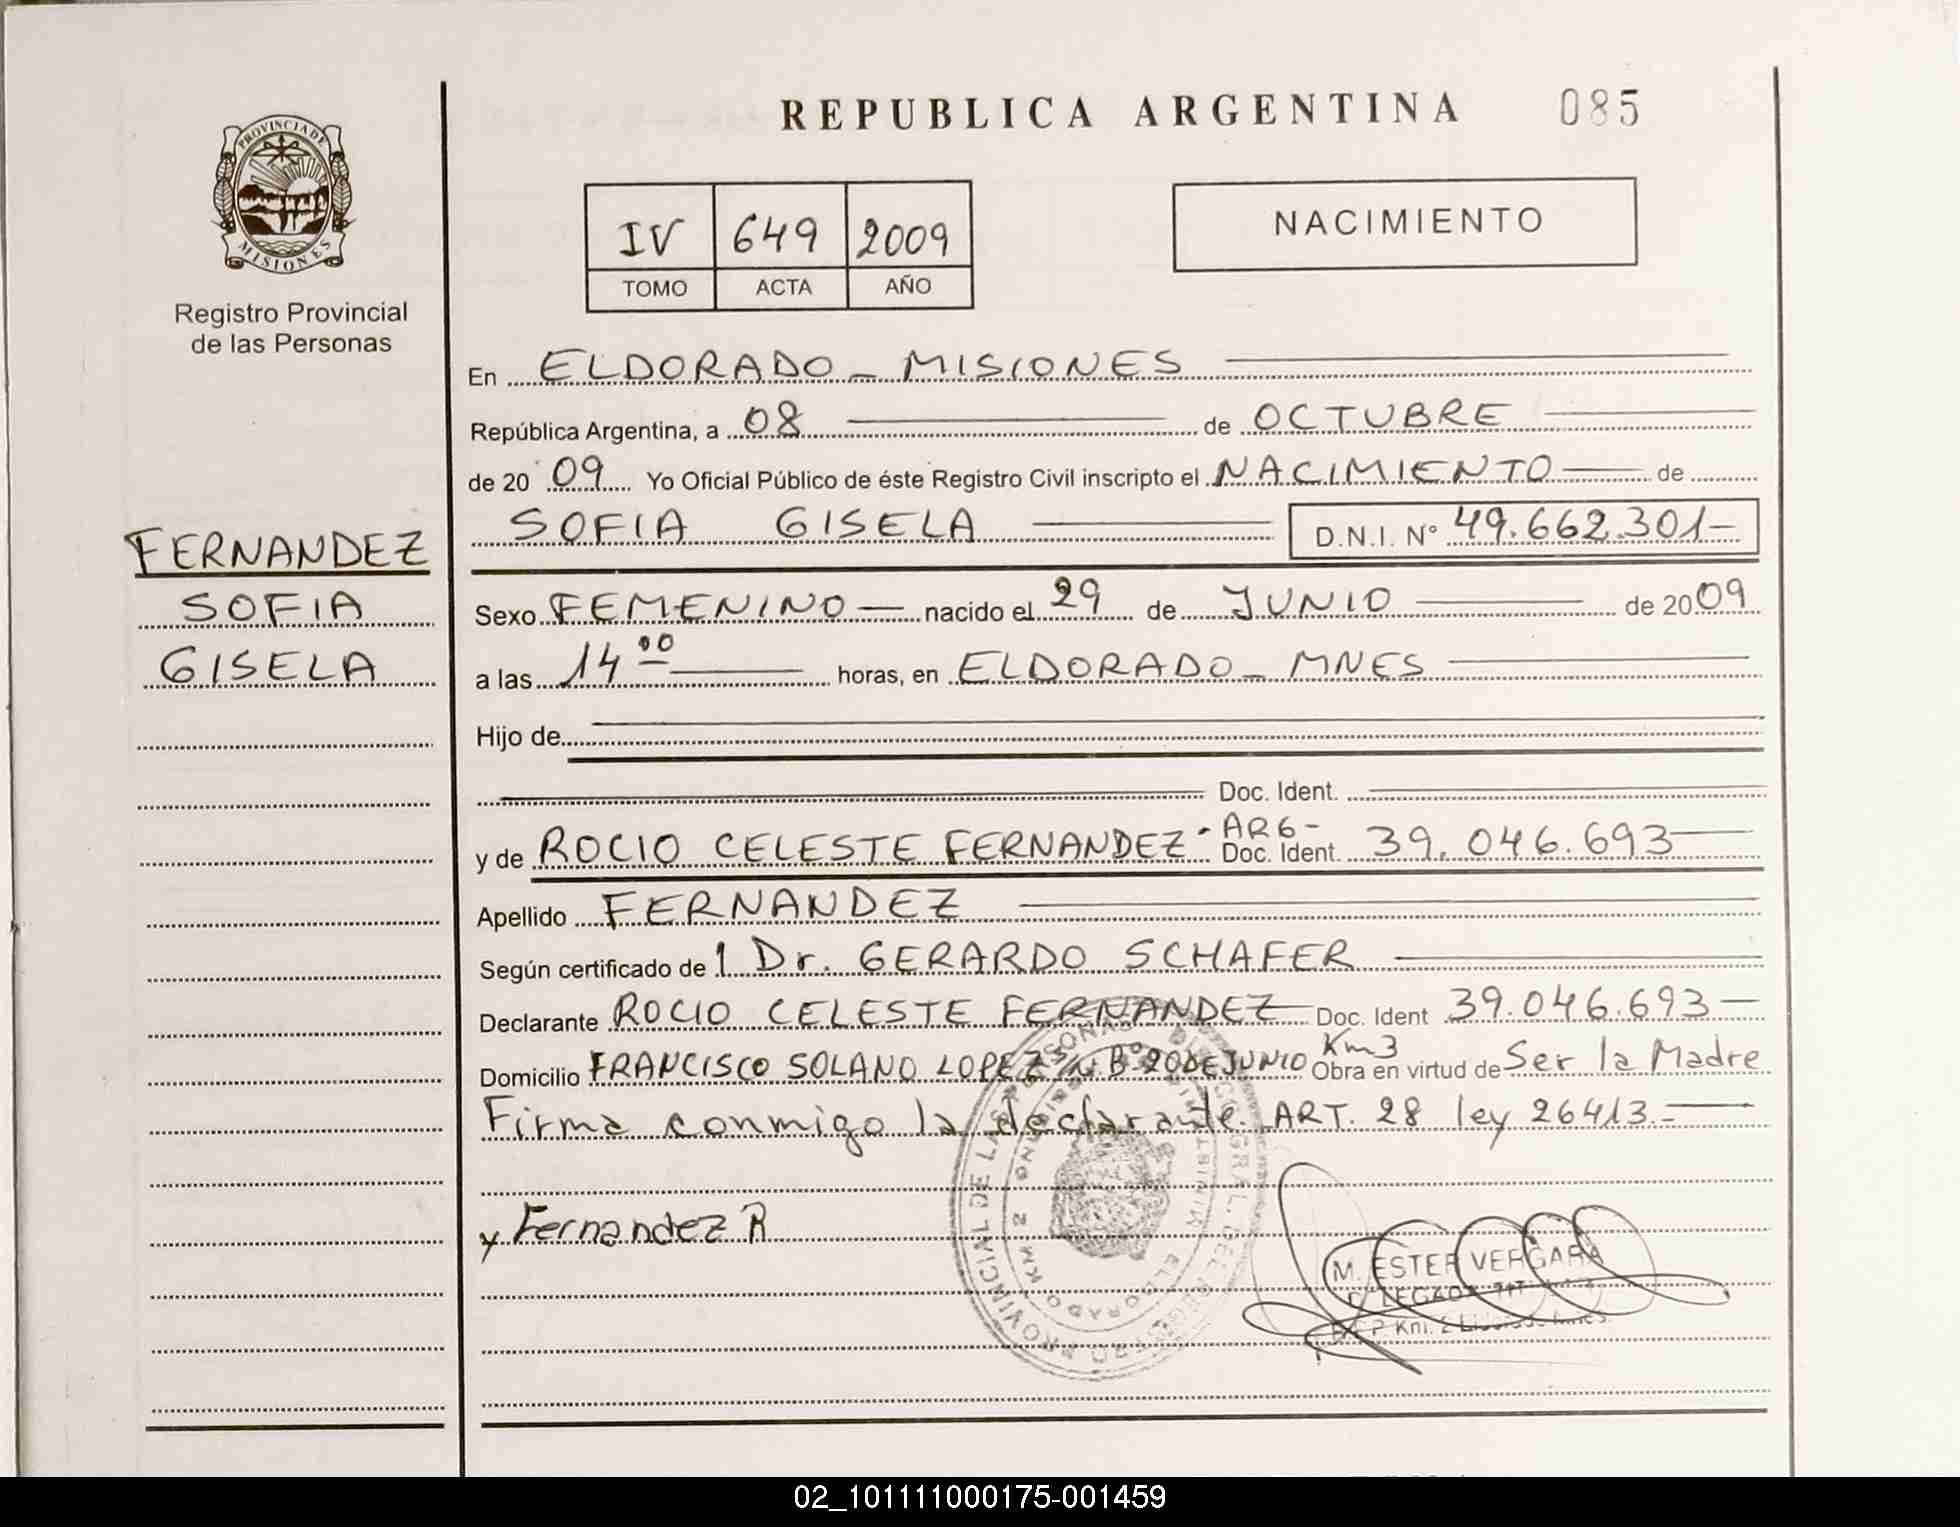 REPUBLICA ARGENTINA 085
PROVINCIA DE
MISIONES
Registro Provincial
de las Personas
IV 649 2009
TOMO ACTA AÑO
NACIMIENTO
En ELDORADO - MISIONES
República Argentina, a 08 de OCTUBRE
de 20 09 Yo Oficial Público de éste Registro Civil inscripto el NACIMIENTO de
SOFIA GISELA D.N.I. Nº 49.662.301-
FERNANDEZ
SOFIA
GISELA
Sexo FEMENINO - nacido el 29 de JUNIO de 2009
a las 14 00 horas, en ELDORADO - MNES
Hijo de
Doc. Ident.
y de ROCIO CELESTE FERNANDEZ - ARG - Doc. Ident. 39.046.693
Apellido FERNANDEZ
Según certificado de 1 Dr. GERARDO SCHAFER
Declarante ROCIO CELESTE FERNANDEZ Doc. Ident 39.046.693 -
Domicilio FRANCISCO SOLANO LOPEZ S/N Bº 20 DE JUNIO Km 3 Obra en virtud de Ser la Madre
Firma conmigo la declarante. ART. 28 ley 26413.-
y Fernandez R
M. ESTER VERGARA
ELDORADO KM 2
02_101111000175-001459